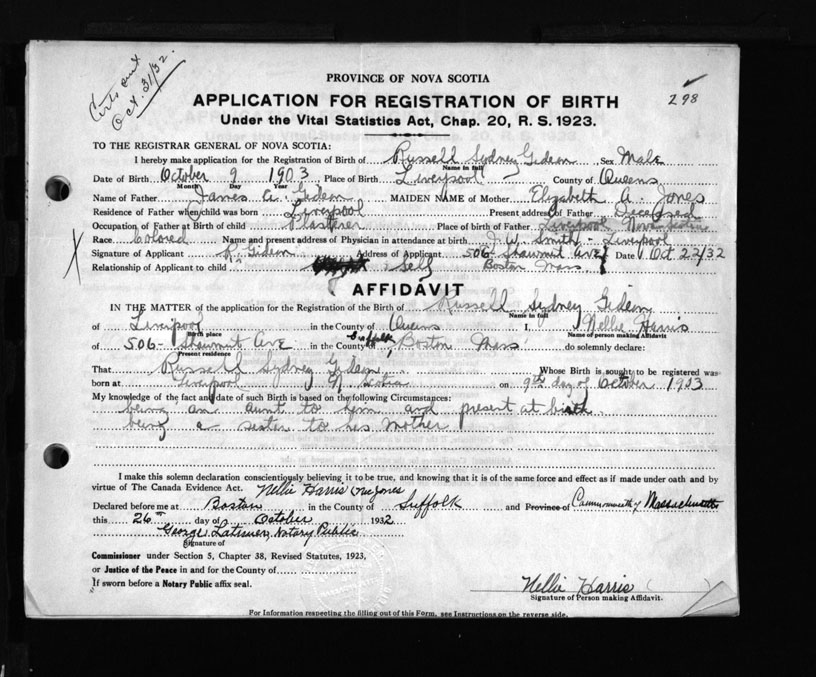 Certs sent
Oct. 31/32.
298
PROVINCE OF NOVA SCOTIA
APPLICATION FOR REGISTRATION OF BIRTH
Under the Vital Statistics Act, Chap. 20, R. S. 1923.
TO THE REGISTRAR GENERAL OF NOVA SCOTIA:
I hereby make application for the Registration of Birth of Russell Sydney Gideon Sex Male
Name in full
Date of Birth October 9 1903 Place of Birth Liverpool County of Queens
Month Day Year
Name of Father James A. Gideon MAIDEN NAME of Mother Elizabeth A. Jones
Residence of Father when child was born Liverpool Present address of Father Deceased
Occupation of Father at Birth of child Plasterer Place of birth of Father Liverpool Nova Scotia
Race Colored Name and present address of Physician in attendance at birth J. W. Smith - Liverpool
Signature of Applicant R. Gideon Address of Applicant 506 - Shawmut Ave Date Oct 22/32
Relationship of Applicant to child Self Boston Mass
X
AFFIDAVIT
IN THE MATTER of the application for the Registration of the Birth of Russell Sydney Gideon
Name in full
of Liverpool in the County of Queens I, Nellie Harris
Birth place Name of person making Affidavit
of 506- Shawmut Ave in the County of Suffolk, Boston Mass do solemnly declare:
Present residence
That Russell Sydney Gideon Whose Birth is sought to be registered was
born at Liverpool N. Scotia on 9th day of October 1903
My knowledge of the fact and date of such Birth is based on the following Circumstances:
being an aunt to him and present at birth
being a sister to his mother
I make this solemn declaration conscientiously believing it to be true, and knowing that it is of the same force and effect as if made under oath and by
virtue of The Canada Evidence Act. Nellie Harris nee Jones
Declared before me at Boston in the County of Suffolk and Province of Commonwealth of Massachusetts
this 26th day of October 1932
George Latimer, Notary Public
Signature of
Commissioner under Section 5, Chapter 38, Revised Statutes, 1923,
or Justice of the Peace in and for the County of
If sworn before a Notary Public affix seal.
Nellie Harris
Signature of Person making Affidavit.
For Information respecting the filling out of this Form, see Instructions on the reverse side.